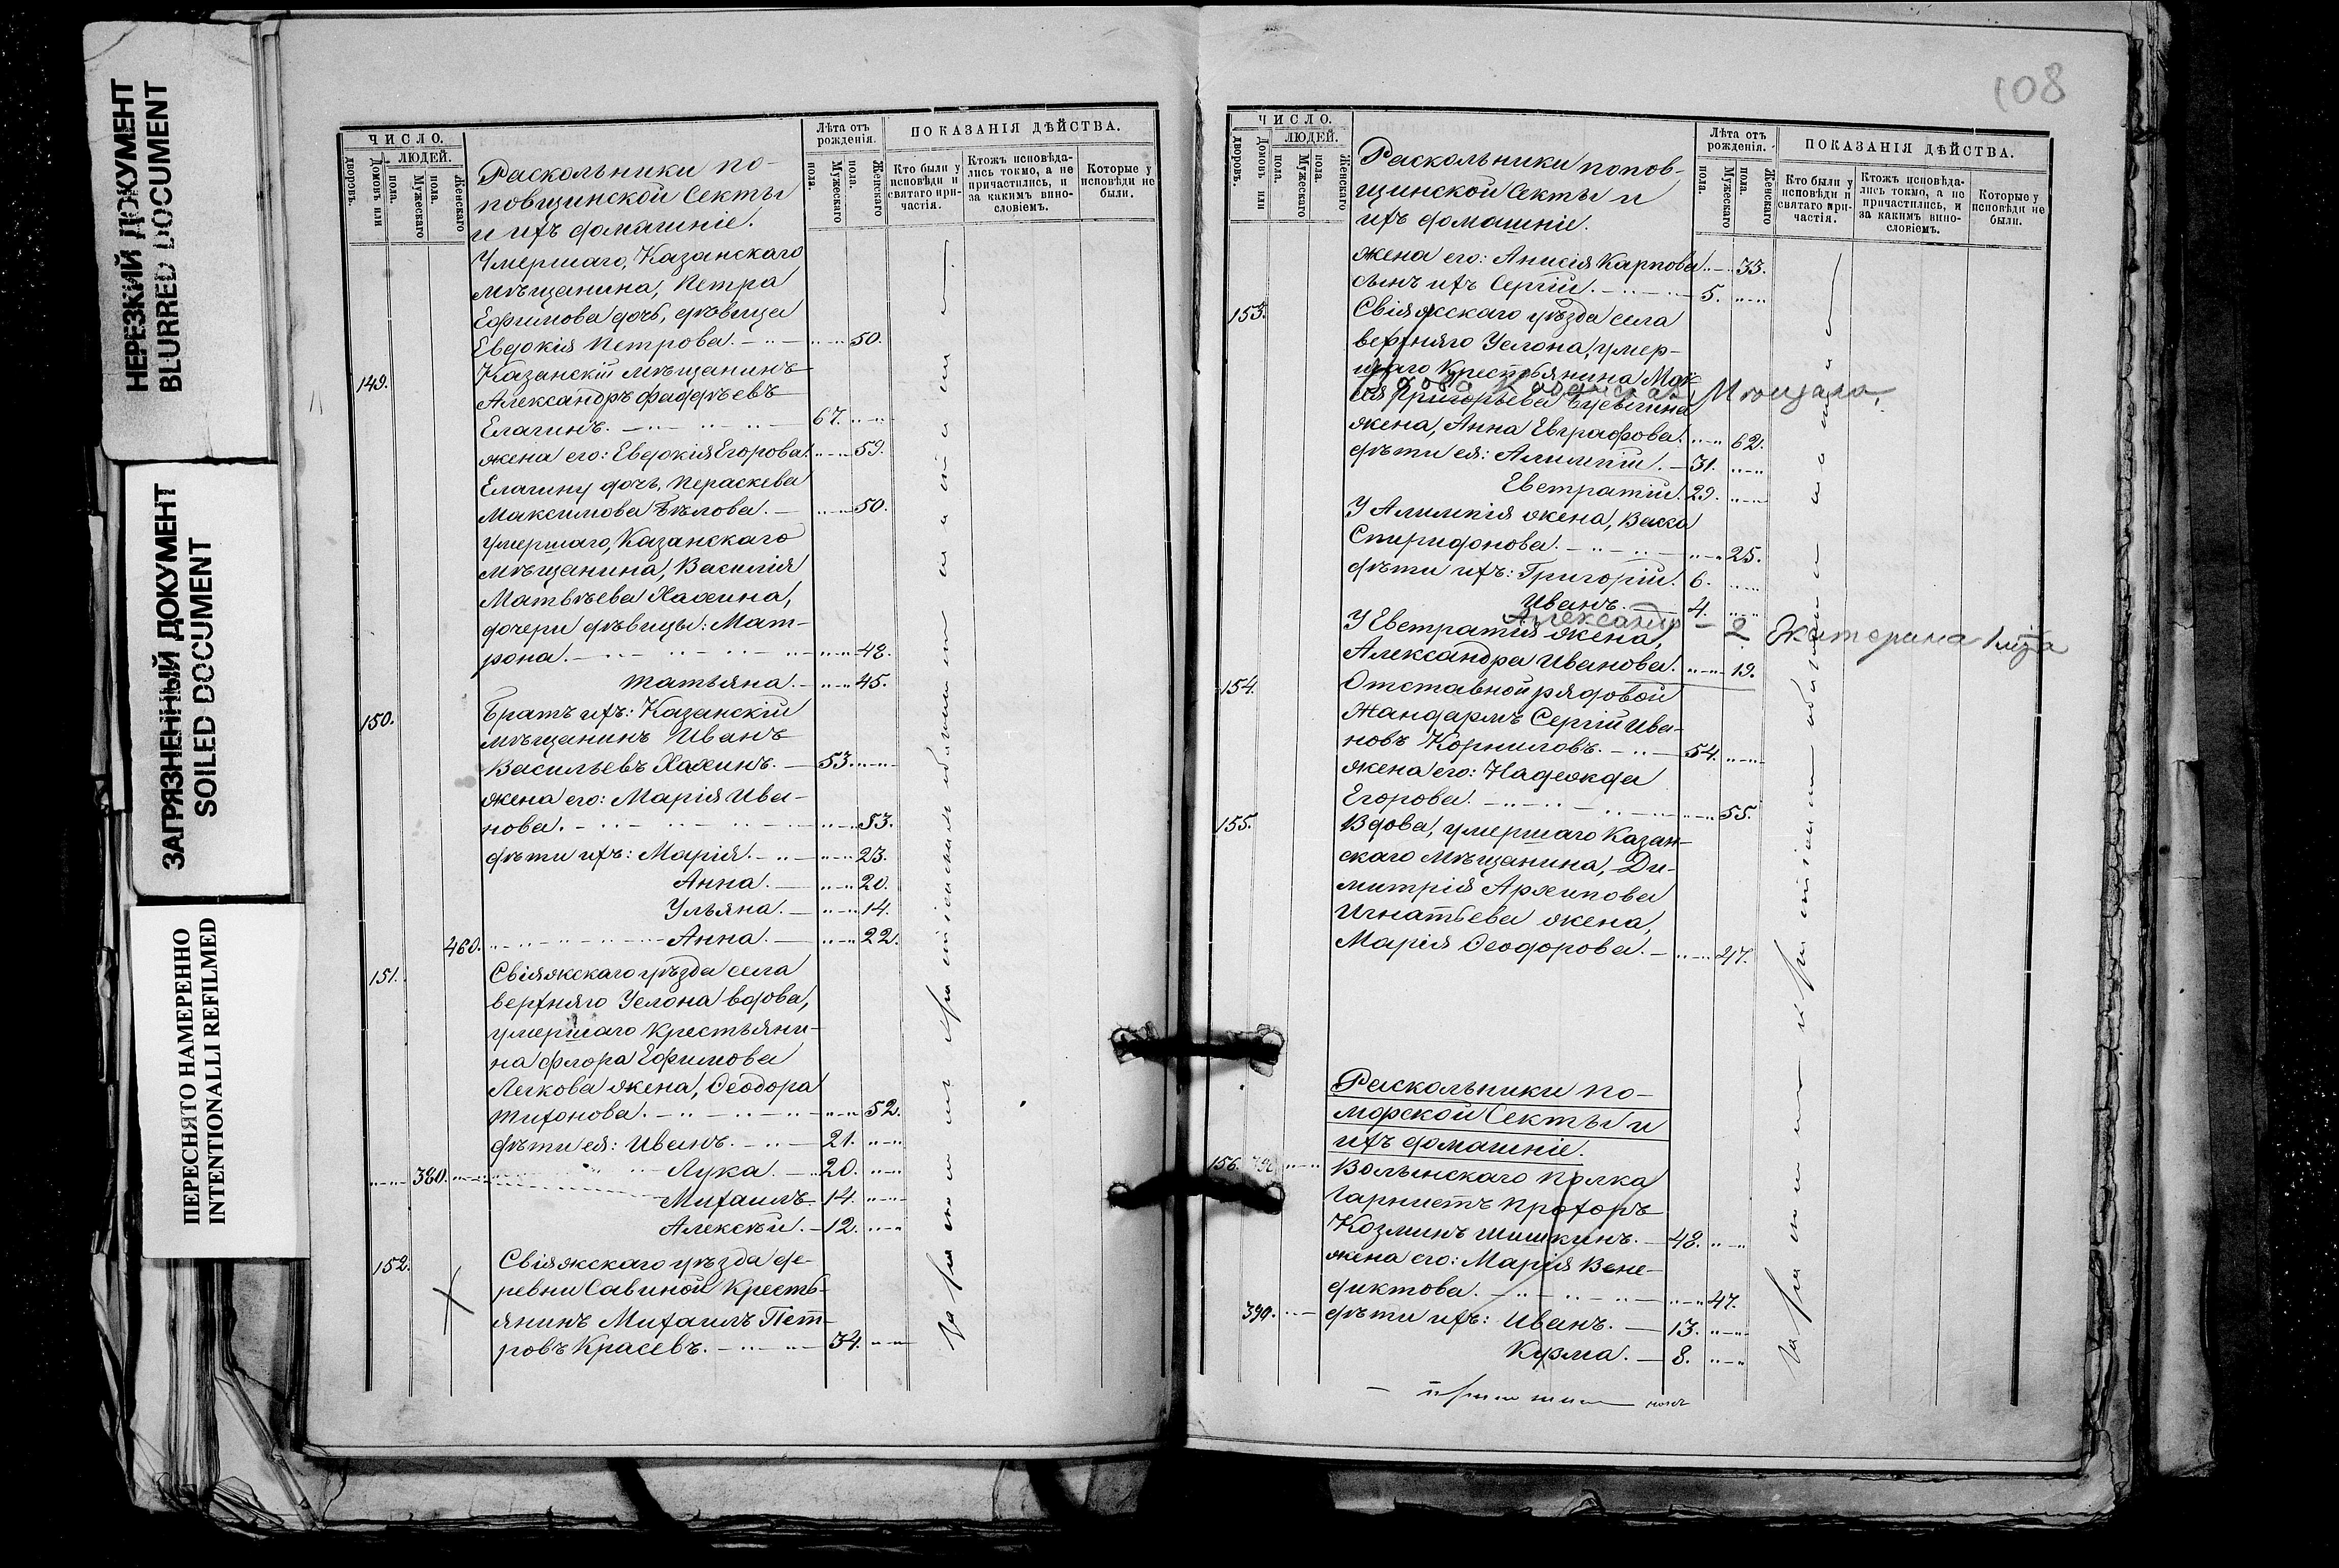 НЕРЕЗКИЙ ДОКУМЕНТ
BLURRED DOCUMENT
ЗАГРЯЗНЕННЫЙ ДОКУМЕНТ
SOILED DOCUMENT
ПЕРЕСНЯТО НАМЕРЕННО
INTENTIONALLI REFILMED
ЧИСЛО.
ЛЮДЕЙ.
Домовъ или дворовъ.
Мужескаго пола.
Женскаго пола.
Лѣта отъ рожденія.
Мужескаго пола.
Женскаго пола.
ПОКАЗАНІЯ ДѢЙСТВА.
Кто были у исповѣди и святаго причастія.
Ктожъ исповѣдались токмо, а не причастились, и за какимъ винословіемъ.
Которые у исповѣди не были.
Раскольники по-
повщинской Секты
и ихъ домашніе.
Умершаго, Казанскаго
мѣщанина, Петра
Ефимова дочь, дѣвица
Евдокія Петрова. 50.
149. Казанскій мѣщанинъ
Александръ Фаддѣевъ
Елагинъ. 67.
жена его: Евдокія Егорова. 59.
Елагину дочь, Пераскева
Максимова Бѣлова. 50.
умершаго, Казанскаго
мѣщанина, Василія
Матвѣева
дочери дѣвицы: Мат-
рона. 48.
Татьяна. 45.
150. Братъ ихъ: Казанскій
мѣщанинъ Иванъ
Васильевъ 53.
жена его: Марія Ива-
нова. 53.
дѣти ихъ: Марія. 23.
Анна. 20.
Ульяна. 14.
460. Анна. 22.
151. Свіяжскаго уѣзда села
верхняго Услона вдова,
умершаго Крестьяни-
на Флора Ефимова
жена, Ѳеодора
Тихонова. 52.
дѣти ея: Иванъ. 21.
380. Лука. 20.
Михаилъ. 14.
Алексѣй. 12.
152. Свіяжскаго уѣзда де-
ревни Савиной Кресть-
янинъ Михаилъ Пет-
ровъ Красевъ. 34.
108
ЧИСЛО.
ЛЮДЕЙ.
Домовъ или дворовъ.
Мужескаго пола.
Женскаго пола.
Лѣта отъ рожденія.
Мужескаго пола.
Женскаго пола.
ПОКАЗАНІЯ ДѢЙСТВА.
Кто были у исповѣди и святаго причастія.
Ктожъ исповѣдались токмо, а не причастились, и за какимъ винословіемъ.
Которые у исповѣди не были.
Раскольники попов-
щинской Секты и
ихъ домашніе.
жена его: Анисія Карпова. 33.
сынъ ихъ Сергій. 5.
153. Свіяжскаго уѣзда села
верхняго Услона, умер-
шаго Крестьянина
Григорьева
жена, Анна Евграфова. 62.
дѣти ея: Алимпій. 31.
Евстратій. 29.
У Алимпія жена, Васса
Спиридонова. 25.
дѣти ихъ: Григорій. 6.
Иванъ. 4.
Александр 2 Екатерина
У Евстратія жена,
Александра Иванова. 19.
154. Отставной рядовой
Жандармъ Сергій Ива-
новъ Корниловъ. 54.
жена его: Надежда
Егорова. 55.
155. Вдова, умершаго Казан-
скаго мѣщанина, Ди-
митрія Архипова
Игнатьева жена,
Марія Ѳеодорова. 47.
Раскольники по-
морской Секты и
ихъ домашніе.
156. Волынскаго Полка
Гарнистъ Прохоръ
Козминъ Шишкинъ. 48.
жена его: Марія Вене-
диктова. 47.
390. дѣти ихъ: Иванъ. 13.
Кузма. 8.